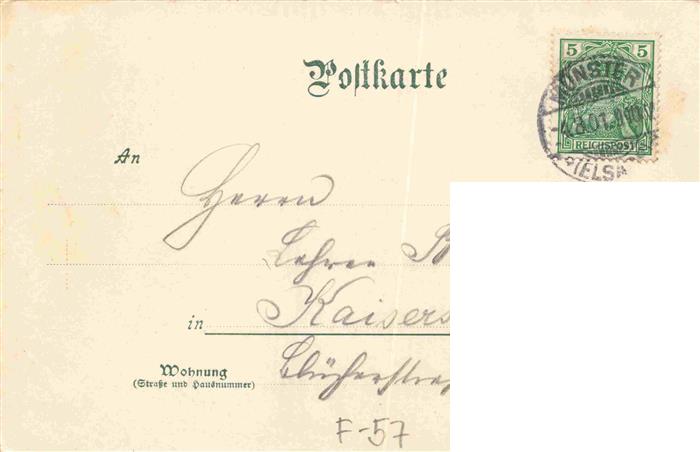 Postkarte
5 5
REICHSPOST
MÜNSTER
An
Herrn
Lehrer
in Kaisers
Wohnung
(Straße und Hausnummer)
Blücherstra
F-57